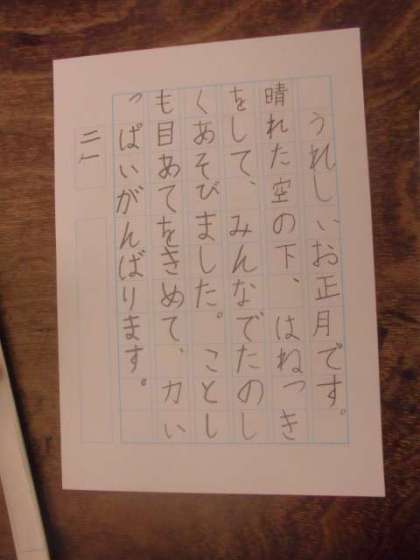 うれしいお正月です。
晴れた空の下、はねつき
をして、みんなでたのし
くあそびました。ことし
も目あてをきめて、力い
っぱいがんばります。
二一